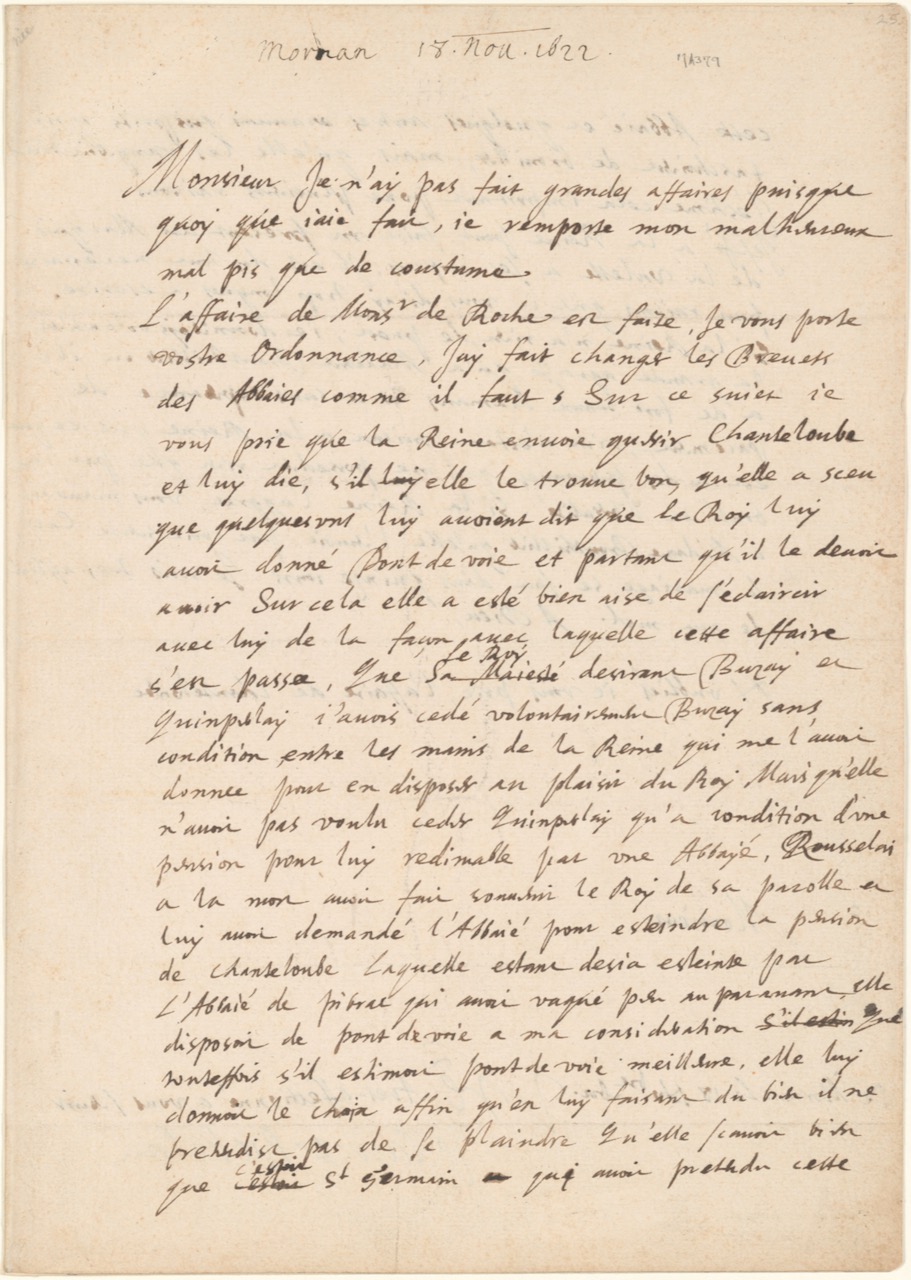 Mornan 18. Nou. 1622.
MA379
Monsieur Je n'ay pas fait grandes affaires puisque
quoy que iaie fait, ie remporte mon malheureux
mal pis que de coustume.
L'affaire de Monsr de Roche est faite, Je vous porte
vostre Ordonnance, Jay fait changer les Breuets
des Abbaies comme il faut, Sur ce suiet ie
vous prie que la Reine enuoie querir Chanteloube
et luy die, s'il luy elle le trouue bon, qu'elle a sceu
que quelquesvns luy auoient dit que le Roy luy
auoit donné Pont de voie et partant qu'il le deuoit
auoir Sur cela elle a esté bien aise de s'éclaircir
auec luy de la façon auec laquelle cette affaire
le Roy
s'est passee, Que Sa Maiesté desirant Buzay et
Quinperlay i'auois cedé volontairement Buzay sans
condition entre les mains de la Reine qui me l'auoit
donnee pour en disposer au plaisir du Roy Mais qu'elle
n'auoit pas voulu ceder Quinperlay qu'a condition d'vne
pension pour luy redimable par vne Abbayé, Rousselai
a la mort auoit fait souuenir le Roy de sa parolle et
luy auoit demandé l'Abbaié pour esteindre la pension
de Chanteloube Laquelle estant desia esteinte par
L'Abbaié de pibrac qui auoit vaqué peu auparauant, elle
disposoit de pont de voie a ma consideration s'il estim Que
toutesfois s'il estimoit pont de voie meilleure, elle luy
donnoit le choix affin qu'en luy faisant du bien il ne
pretendist pas de se plaindre Qu'elle sçauoit bien
c'estoit
que c'estoit St Germain qui auoit pretendu cette